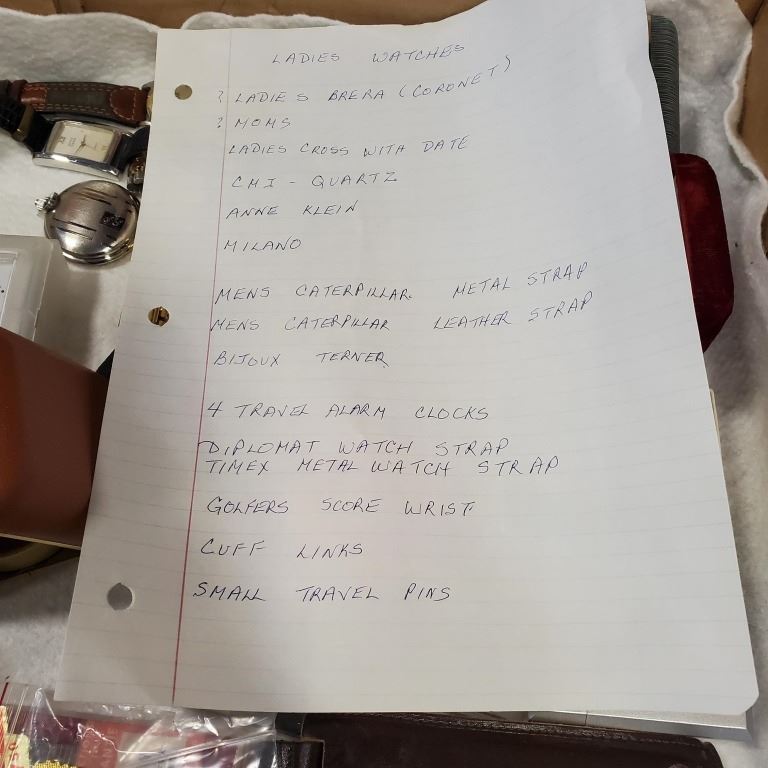 LADIES WATCHES
? LADIES BRERA (CORONET)
? MOMS
LADIES CROSS WITH DATE
CHI - QUARTZ
ANNE KLEIN
MILANO
MENS CATERPILLAR METAL STRAP
MENS CATERPILLAR LEATHER STRAP
BIJOUX TERNER
4 TRAVEL ALARM CLOCKS
DIPLOMAT WATCH STRAP
TIMEX METAL WATCH STRAP
GOLFERS SCORE WRIST
CUFF LINKS
SMALL TRAVEL PINS